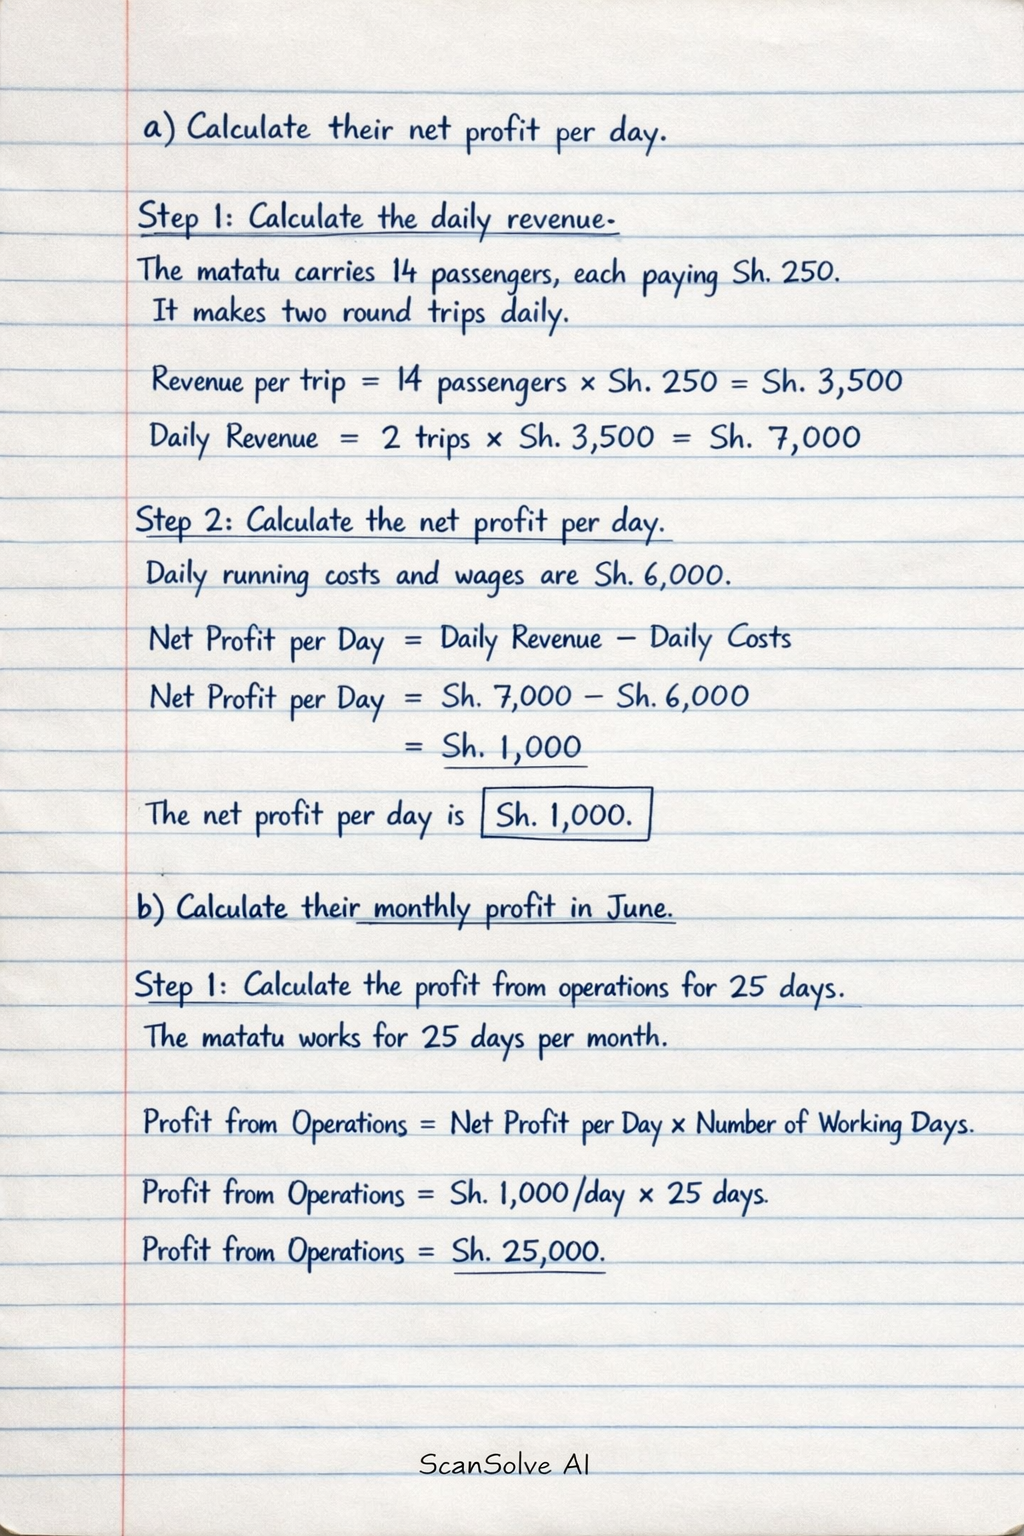 a) Calculate their net profit per day.
Step 1: Calculate the daily revenue-
The matatu carries 14 passengers, each paying Sh. 250.
It makes two round trips daily.
Revenue per trip = 14 passengers × Sh. 250 = Sh. 3,500
Daily Revenue = 2 trips × Sh. 3,500 = Sh. 7,000
Step 2: Calculate the net profit per day.
Daily running costs and wages are Sh. 6,000.
Net Profit per Day = Daily Revenue – Daily Costs
Net Profit per Day = Sh. 7,000 – Sh. 6,000
= Sh. 1,000
The net profit per day is Sh. 1,000.
b) Calculate their monthly profit in June.
Step 1: Calculate the profit from operations for 25 days.
The matatu works for 25 days per month.
Profit from Operations = Net Profit per Day × Number of Working Days.
Profit from Operations = Sh. 1,000/day × 25 days.
Profit from Operations = Sh. 25,000.
ScanSolve AI